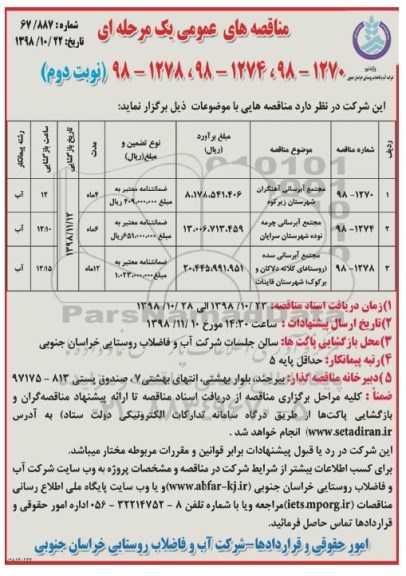 مناقصه های عمومی یک مرحله ای
شماره: ۶۷/۸۸۷
تاریخ: ۱۳۹۸/۱۰/۲۲
۱۲۷۰-۹۸، ۱۲۷۴-۹۸، ۱۲۷۸-۹۸ (نوبت دوم)
این شرکت در نظر دارد مناقصه هایی با موضوعات ذیل برگزار نماید:
ردیف شماره مناقصه موضوع مناقصه مبلغ برآورد (ریال) نوع تضمین و مبلغ(ریال) مدت تاریخ بازگشایی ساعت بازگشایی رشته پیمانکار
۱ ۱۲۷۰-۹۸ مجتمع آبرسانی آهنگران شهرستان زیرکوه ۸.۱۷۸.۵۴۱.۴۰۶ ضمانتنامه معتبر به مبلغ ۴۰۹.۰۰۰.۰۰۰ ریال ۶ماه ۱۳۹۸/۱۱/۱۲ ۱۲ آب
۲ ۱۲۷۴-۹۸ مجتمع آبرسانی چرمه نوده شهرستان سرایان ۱۳.۰۰۶.۷۱۳.۴۵۹ ضمانتنامه معتبر به مبلغ۶۵۱.۰۰۰.۰۰۰ ریال ۶ماه ۱۲:۱۰ آب
۳ ۱۲۷۸-۹۸ مجتمع آبرسانی سده (روستاهای کلاته دلاکان و برکوک) شهرستان قاینات ۲۰.۴۴۵.۹۹۱.۹۵۱ ضمانتنامه معتبر به مبلغ ۱.۰۲۳.۰۰۰.۰۰۰ ۱۲ماه ۱۲:۱۵ آب
۱)زمان دریافت اسناد مناقصه: ۲۳ /۱۰/ ۱۳۹۸ الی ۲۸ /۱۰/ ۱۳۹۸
۲)تاریخ ارسال پیشنهادات : ساعت ۱۴:۳۰ مورخ ۱۰ /۱۱/ ۱۳۹۸
۳)محل بازگشایی پاکت ها: سالن جلسات شرکت آب و فاضلاب روستایی خراسان جنوبی
۴)رتبه پیمانکار: حداقل پایه ۵
۵)دبیرخانه مناقصه گذار: بیرجند، بلوار بهشتی، انتهای بهشتی۷، صندوق پستی ۸۱۳ - ۹۷۱۷۵
ضمناً : کلیه مراحل برگزاری مناقصه از دریافت اسناد مناقصه تا ارائه پیشنهاد مناقصه‌گران و
بازگشایی پاکت‌ها از طریق درگاه سامانه تدارکات الکترونیکی دولت ستاد) به آدرس
www.setadiran.ir) انجام خواهد شد .
این شرکت در رد یا قبول پیشنهادات برابر قوانین و مقررات مربوطه مختار میباشد.
برای کسب اطلاعات بیشتر از شرایط شرکت در مناقصه و مشخصات پروژه به وب سایت شرکت آب
و فاضلاب روستایی خراسان جنوبی (www.abfar-kj.ir)و یا وب سایت پایگاه ملی اطلاع رسانی
مناقصات (iets.mporg.ir)مراجعه ویا با شماره تلفن ۸ - ۳۲۲۱۴۷۵۲ - ۰۵۶ اداره امور حقوقی و
قراردادها تماس حاصل فرمائید.
امور حقوقی و قراردادها-شرکت آب و فاضلاب روستایی خراسان جنوبی
ParsNamadData